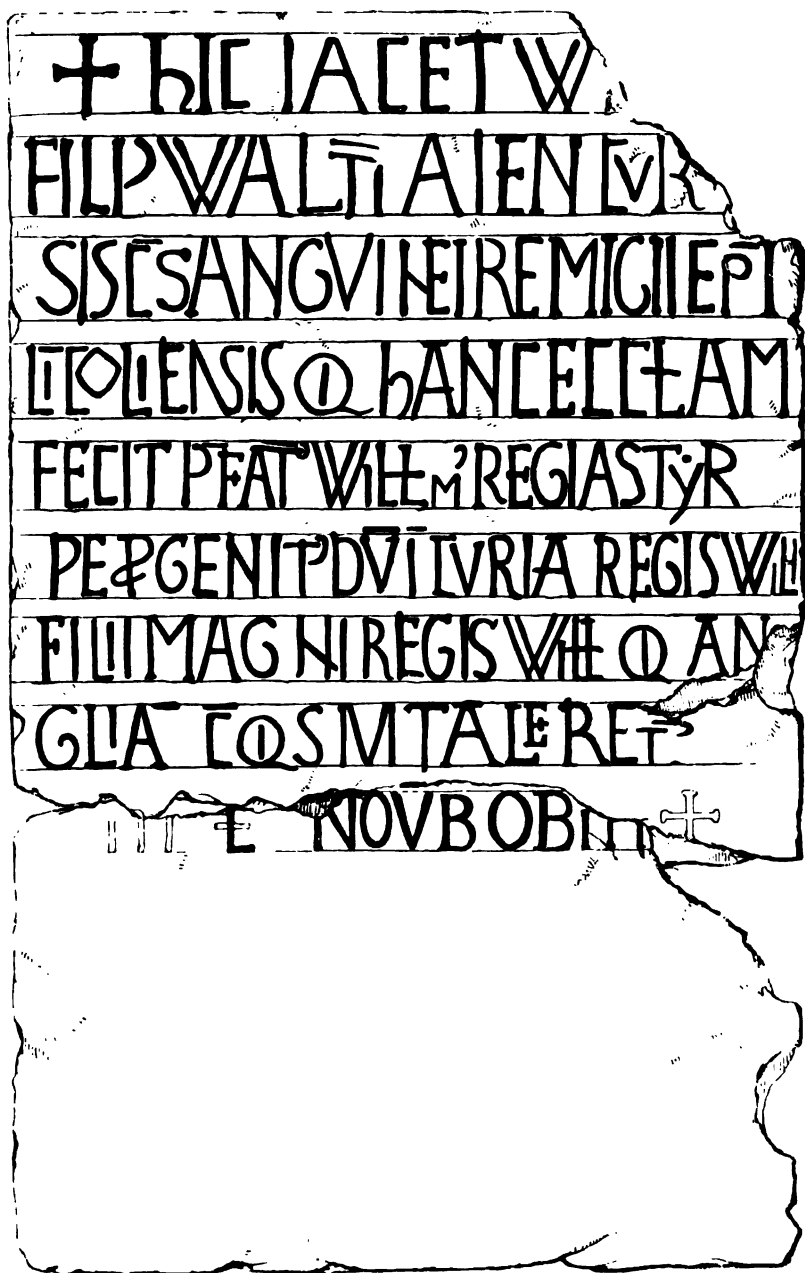 + hIC IACET W
FILP' WALTI AIENCVR
SIS C̄SANGVINEI REMIGII EP̄I
LĪCOLIENSIS Q hANC ECCŁAM
FECIT P̄FAT' WILŁM' REGIA STYR
PE PGENIT' DV̄ Ī CVRIA REGIS WILŁI
FILII MAGNI REGIS WILŁ Q AN
GLĪA C̄QSIVIT ALERET'
III Ł NOVB OBIIT +